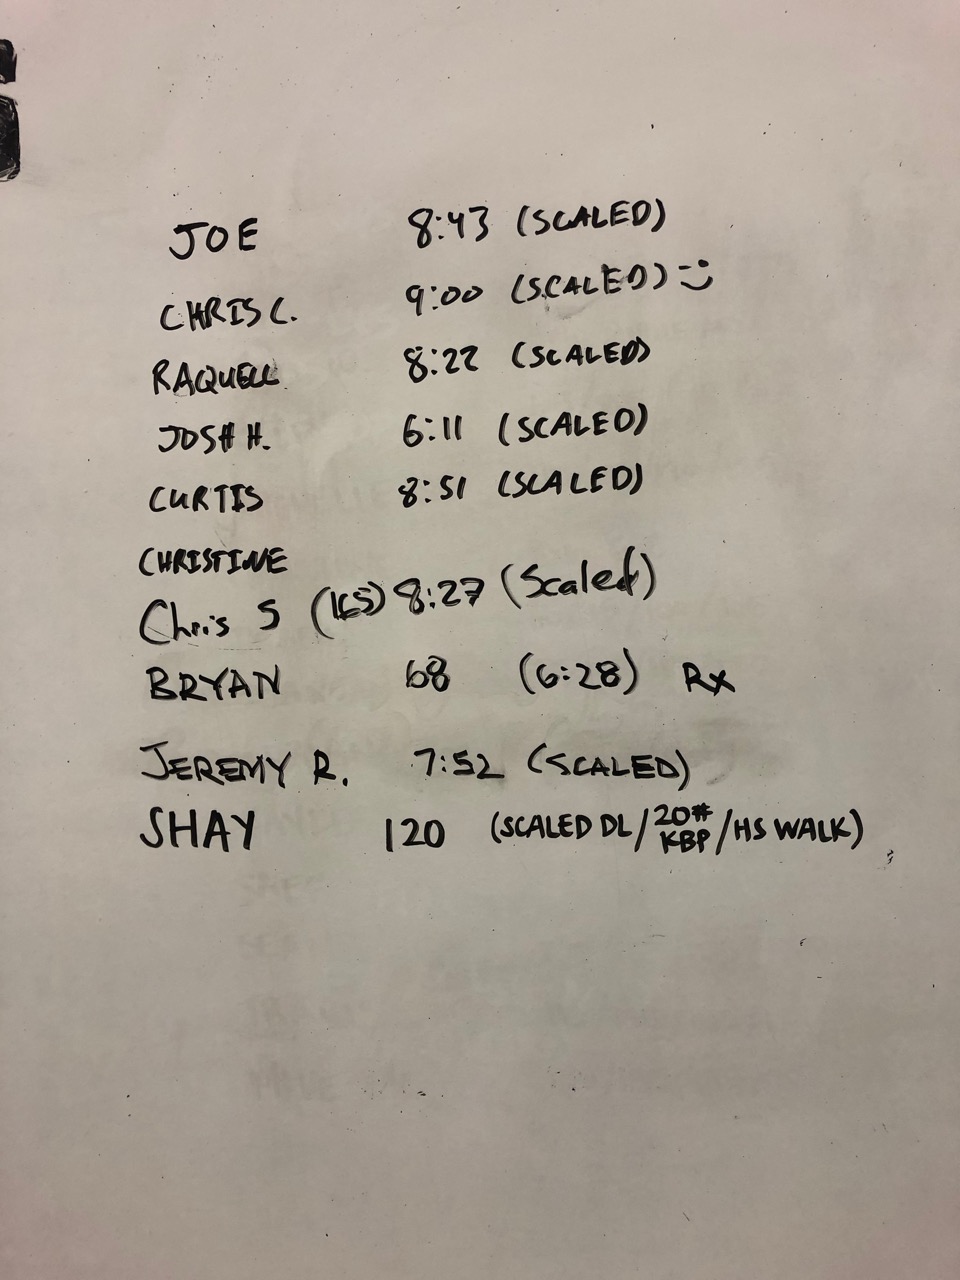 JOE 8:43 (SCALED)
CHRIS C. 9:00 (SCALED) =)
RAQUELL 8:22 (SCALED)
JOSH H. 6:11 (SCALED)
CURTIS 8:51 (SCALED)
CHRISTINE
Chris S (165) 8:27 (Scaled)
BRYAN 68 (6:28) Rx
JEREMY R. 7:52 (SCALED)
SHAY 120 (SCALED DL/20# KBP/HS WALK)